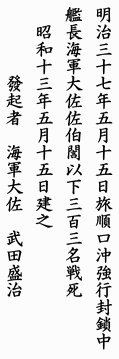 明治三十七年五月十五日旅順口沖強行封鎖中
艦長海軍大佐佐伯誾以下三百三名戦死
昭和十三年五月十五日建之
發起者　海軍大佐　武田盛治